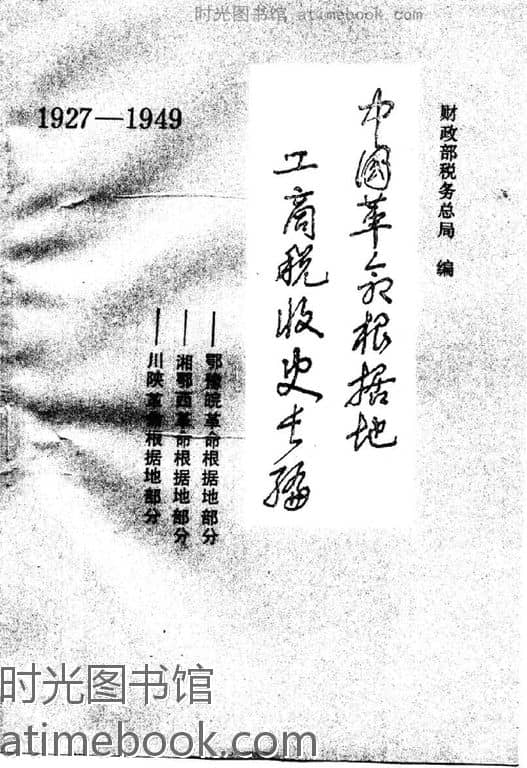 时光图书馆 atimebook.com
财政部税务总局 编
中国革命根据地
工商税收史长编
1927—1949
——鄂豫皖革命根据地部分
——湘鄂西革命根据地部分
——川陕革命根据地部分
时光图书馆
atimebook.com